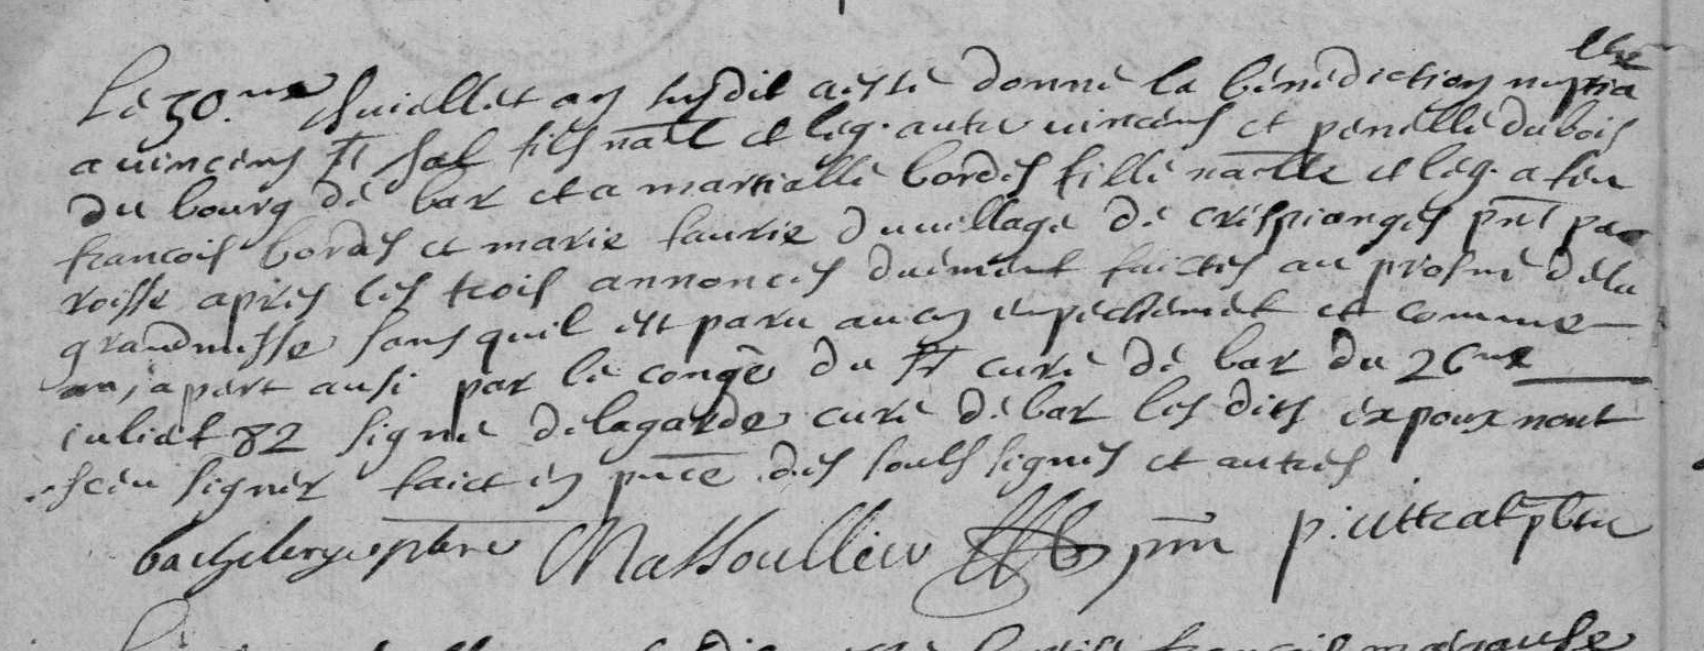 lle
Le 30.me Juiellet an susdit a esté donné la bénédiction nuptia
a vincens Sal fils nael et leg. autre vincens et peirelle dubois
du bourg de bar et a martialle bordes fille naelle et leg. a feu
francois bordes et marie faurie du village de crespianges pnt par
roisse apres les trois annonces duement faictes au prosne dela
grandmesse sans quil est paru aucun enpechemet et comme
apert ausi par le congé du Sr curé de bar du 26me
iuliet 82 signé delagarde curé de bar les dits expoux nont
sceu signer faict en pnce des souls signes et autres
ptre Massoullier pnt p. vitrat pbtre
francois